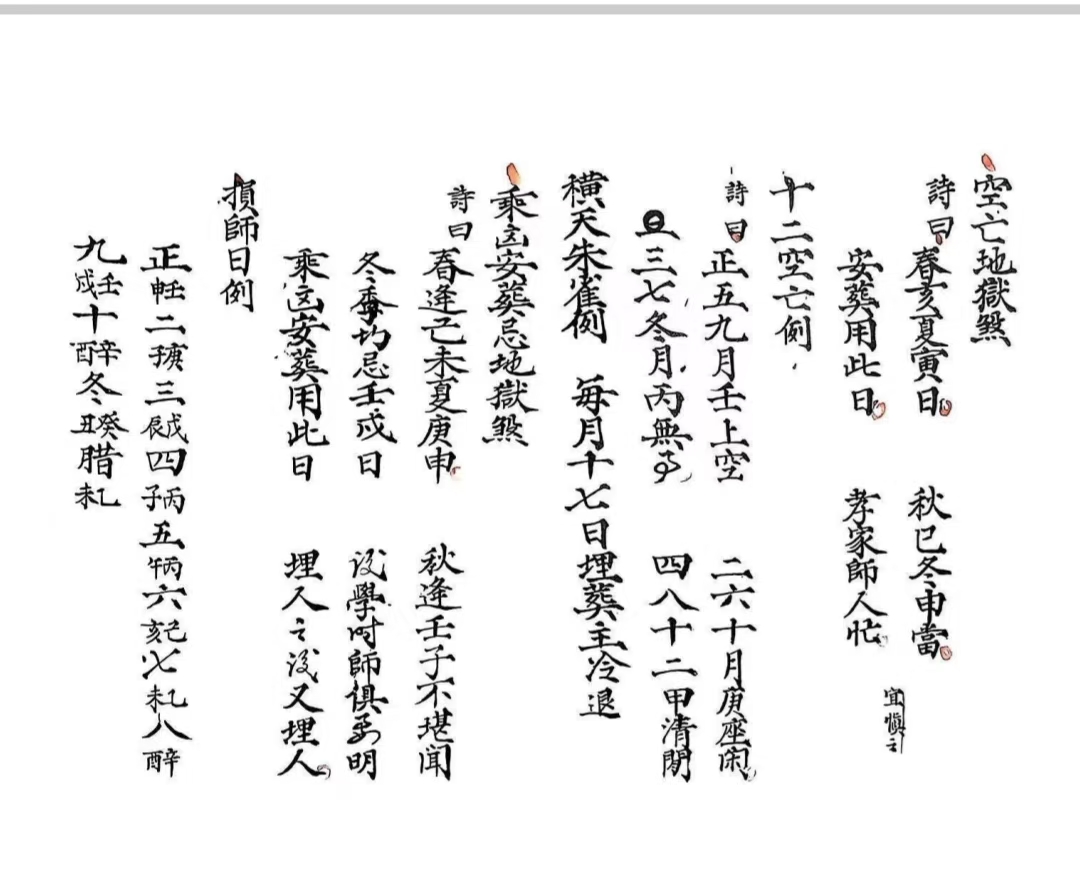 空亡地獄煞
詩曰 春亥夏寅日 秋巳冬申當
安葬用此日 孝家師人忙 宜慎之
十二空亡例
詩曰 正五九月壬上空 二六十月庚座闲
三七冬月丙無 四八十二甲清閒
橫天朱雀例 每月十七日埋葬主冷退
乘凶安葬忌地獄煞
詩曰 春逢己未夏庚申 秋逢壬子不堪闻
冬季均忌壬戌日 後學时師俱要明
乘凶安葬用此日 埋人之後又埋人
損師日例
正 二 三 四丙子五丙午六己亥七乚未八辛酉
九壬戌十辛酉冬癸丑腊乚未